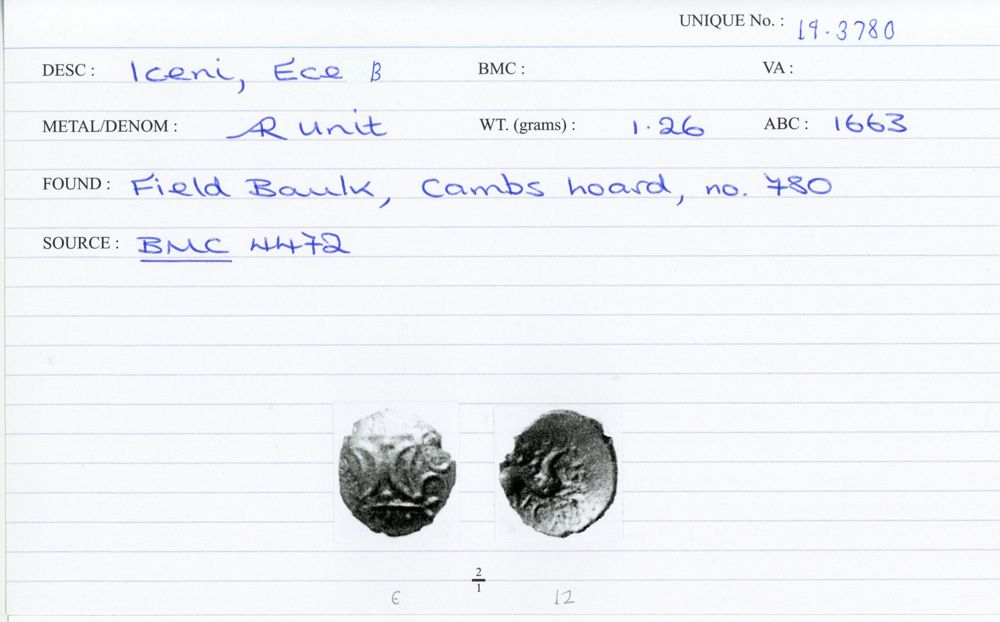 UNIQUE No. : 19.3780
DESC : Iceni, Ece B BMC : VA :
METAL/DENOM : AR unit WT. (grams) : 1.26 ABC : 1663
FOUND : Field Baulk, Cambs hoard, no. 780
SOURCE : BMC 4472
2
1
E 12